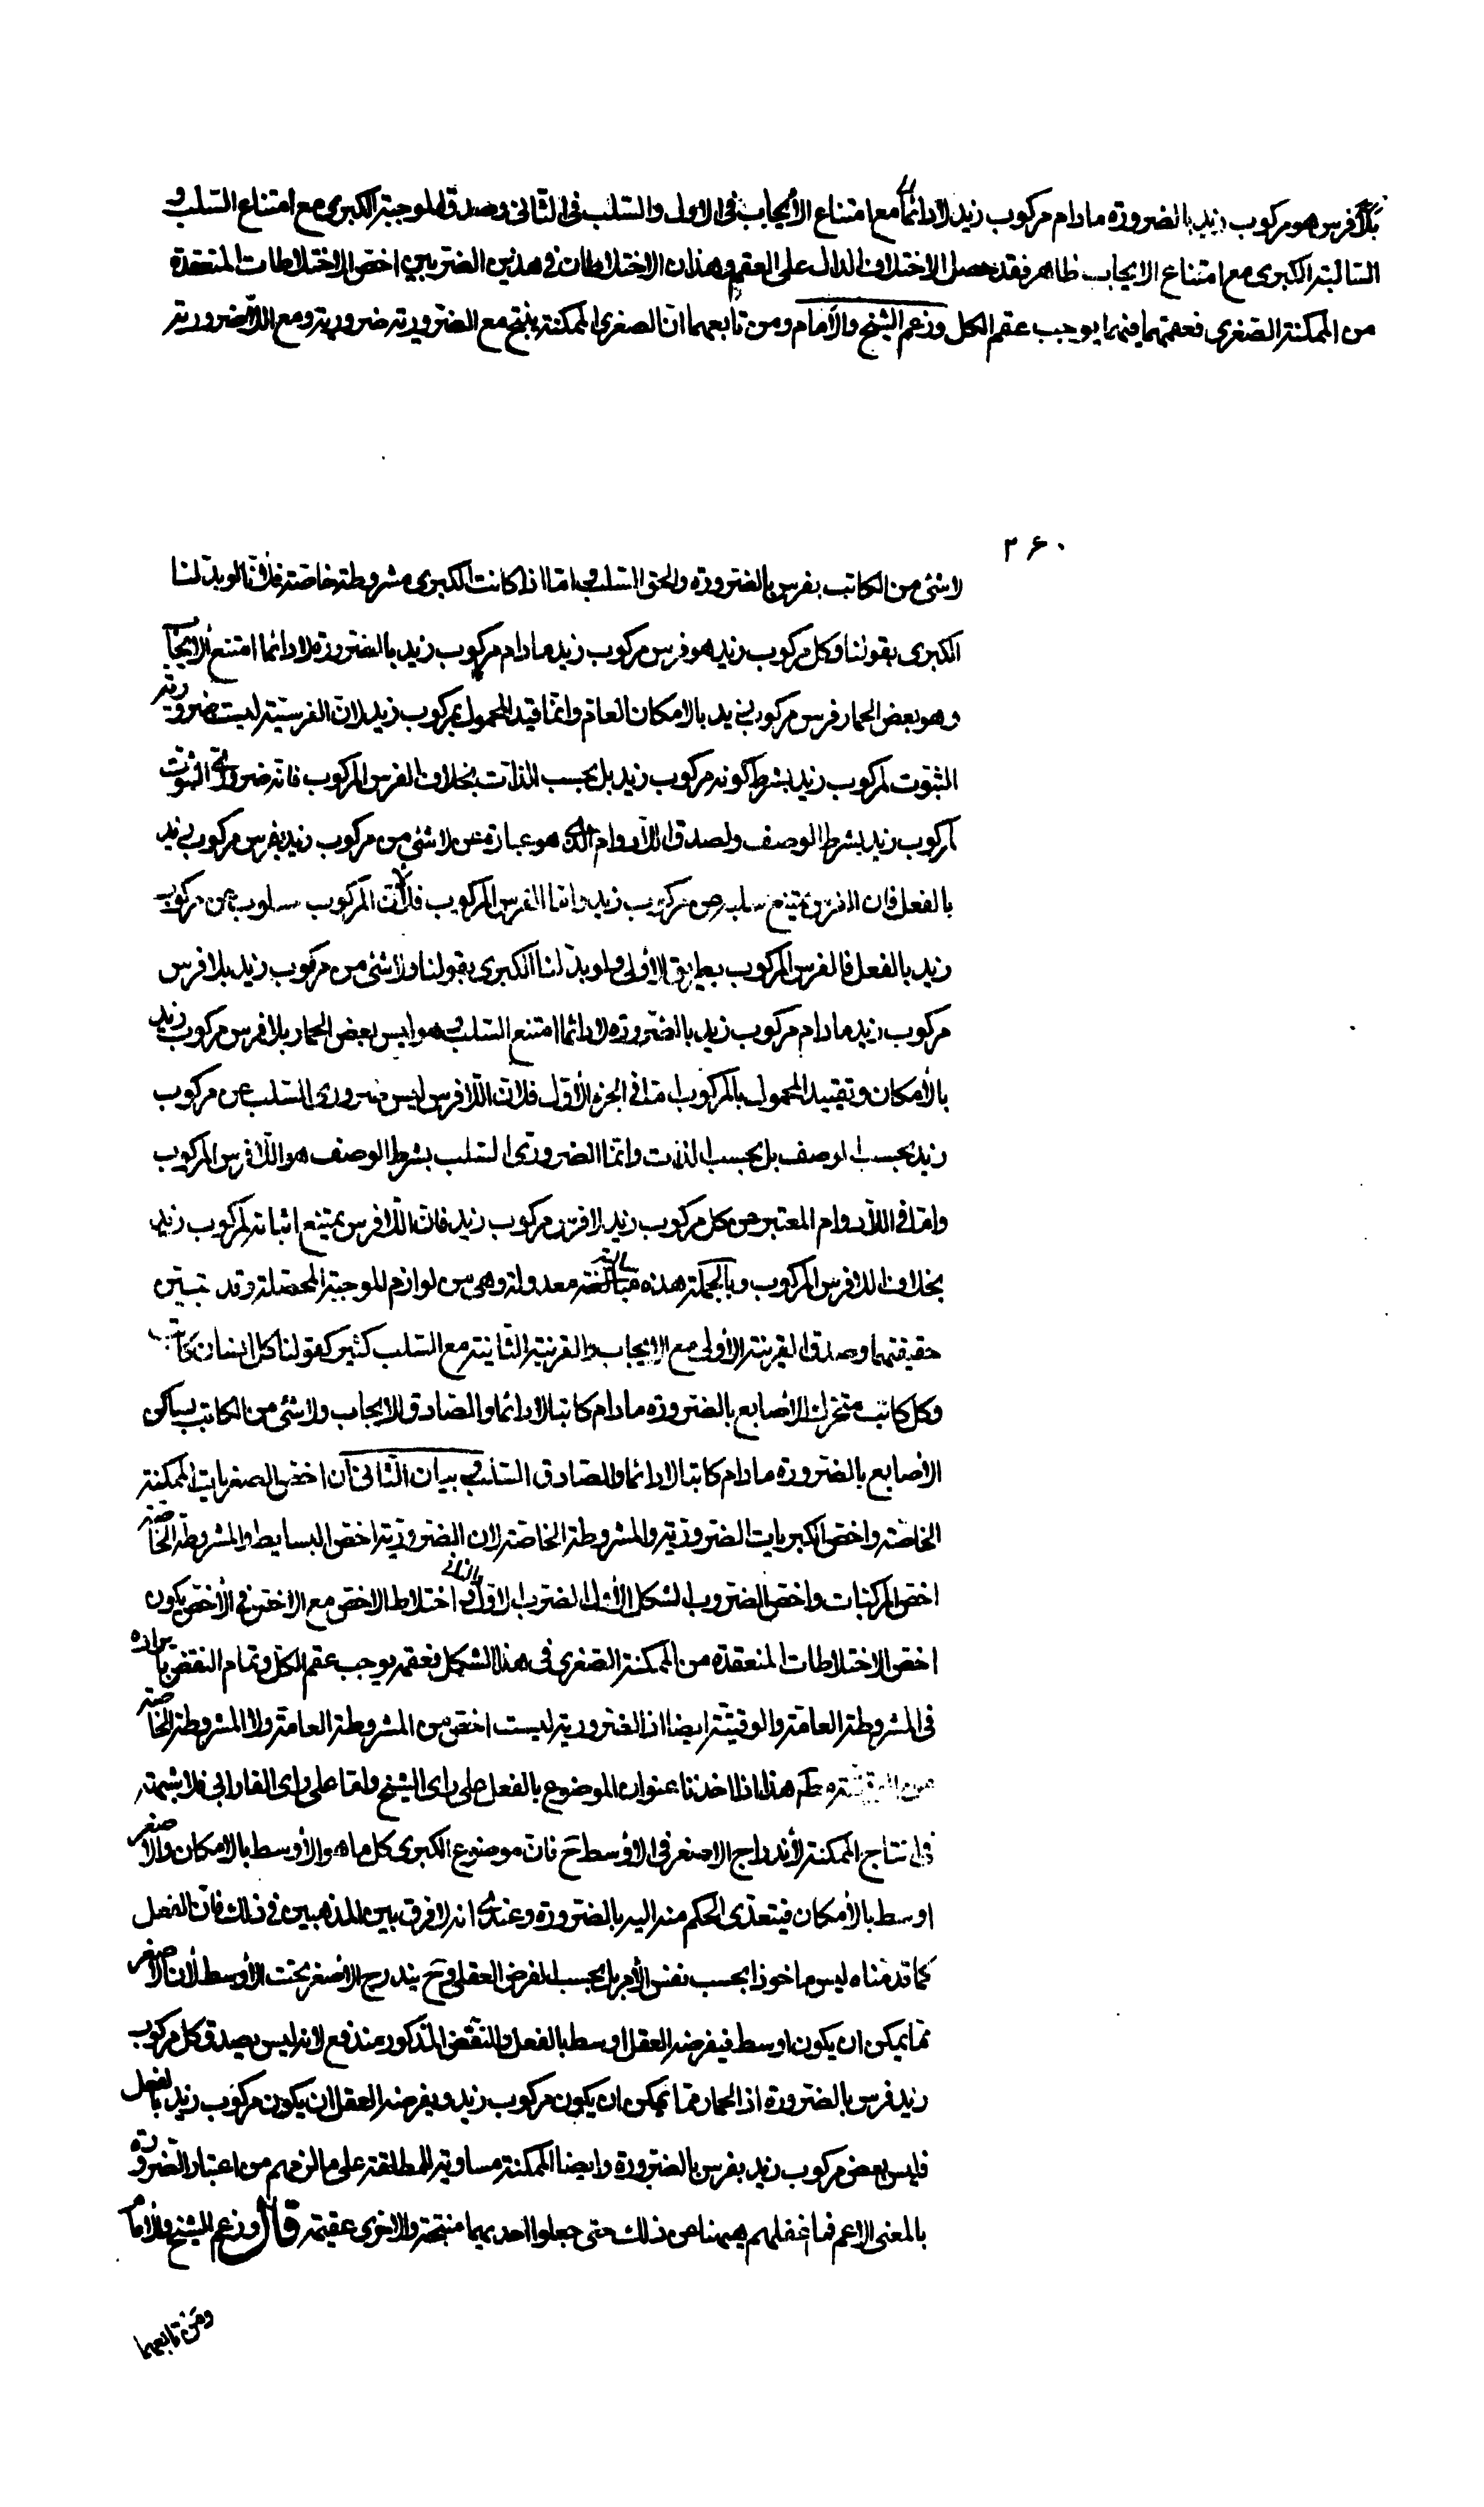 بلا فرس هو مركوب زيد بالضرورة مادام مركوب زيد لا دائما مع امتناع الأيجاب فى الاول والسّلب فى الثانى وصدق الموجبة الكبرى مع امتناع السّلب و
السّالبة الكبرى مع امتناع الايجاب ظاهر فقد حصل الاختلاف الدال على العقم وهذان الاختلاطان فى هذين الضربين اخصّ الاختلاطات المنعقدة
من الممكنة الصّغرى فعقمهما فيهما يوجب عقم الكل وزعم الشيخ والأمام ومن تابعهما انّ الصغرى الممكنة ينتج مع الضّرورية ضرورية ومع اللاضرورية
٢۶٠
لا شئ من الكاتب بفرس بالضّرورة والحق السّلب وامّا اذا كانت الكبرى مشروطة خاصّة فلانّا لو بدّلنا
الكبرى بقولنا وكل مركوب زيد هو فرس مركوب زيد مادام مركوب زيد بالضّرورة لا دائما امتنع الايجاب
وهو بعض الحمار فرس مركوب زيد بالامكان العام وانّما قيد المحمول بمركوب زيد لانّ الفرسيّة ليست ضرورية
الثبوت لمركوب زيد بشرط كونه مركوب زيد بل بحسب الذات بخلاف الفرس المركوب فانّه ضرورى الثبوت
لمركوب زيد بشرط الوصف ولصدق اللّادوام الذى هو عبارة عن لا شئ من مركوب زيد بفرس مركوب زيد
بالفعل فان الفرس يمتنع سلبه عن مركوب زيد وامّا الفرس المركوب فلانّ المركوب مسلوب عن مركوب
زيد بالفعل فالفرس المركوب بطريق الأولى ولو بدّلنا الكبرى بقولنا ولا شئ من مركوب زيد بلا فرس
مركوب زيد مادام مركوب زيد بالضّرورة لا دائما امتنع السّلب وهو ليس بعض الحمار بلا فرس مركوب زيد
بالأمكان وتقييد المحمول بالمركوب امّا فى الجزء الأوّل فلانّ اللّافرس ليس ضرورى السّلب عن مركوب
زيد بحسب الوصف بل بحسب الذات وانّما الضرورىّ السّلب بشرط الوصف هو اللّافرس المركوب
وامّا فى اللّادوام المعتبر من كل مركوب زيد لا فرس مركوب زيد فانّ اللّافرس يمتنع اثباته لمركوب زيد
بخلاف اللّافرس المركوب وبالجملة هذه سالبة معدولة وهى من لوازم الموجبة المحصّلة وقد تبيّن
حقيقتهما وصدق القرينة الأولى مع الايجاب والقرينة الثّانية مع السّلب كثير كقولنا كل انسان كاتب
وكل كاتب متحرّك الأصابع بالضّرورة مادام كاتبا لا دائما والصّادق الايجاب ولا شئ من الكاتب بساكن
الأصابع بالضّرورة مادام كاتبا لا دائما والصّادق السّلب بيان الثّانى ان اخصّ الصغريات الممكنة
الخاصّة واخصّ الكبريات الضّرورية والمشروطة الخاصّة لان الضّرورية اخصّ البسايط والمشروطة الخاصّة
اخصّ المركّبات واخصّ الضّروب الشكل الأوّل الضّرب الاوّل والثانى و اختلاط الاخصّ مع الاخصّ فى الأخصّ يكون
اخصّ الاختلاطات المنعقدة من الممكنة الصّغرى فى هذا الشكل فعقمه يوجب عقم الكلّ وتمام النقض بايراده
فى المشروطة العامّة والوقتيّة ايضا اذ الضّرورية ليست اخصّ من المشروطة العامّة ولا المشروطة الخاصّة
من الوقتيّة هذا اذا اخذنا عنوان الموضوع بالفعل على راى الشيخ وامّا على راى الفارابى فلا شبهة
فى انتاج الممكنة لأندراج الاصغر فى الاوسط ح فانّ موضوع الكبرى كل ما هو الأوسط بالامكان والاصغر
اوسط بالأمكان فيتعدّى الحكم منه اليه بالضّرورة وعندى انه لا فرق بين المذهبين فى ذلك فانّ الفعل
كما قدمناه ليس ماخوذا بحسب نفس الأمر بل بحسب الفرض العقلى وح يندرج الاصغر تحت الأوسط لأن الاصغر
ممّا يمكن ان يكون اوسط فيفرضه العقل اوسط بالفعل والنّقض المذكور مندفع لانه ليس يصدق كل مركوب
زيد فرس بالضّرورة اذ الحمار ممّا يمكن ان يكون مركوب زيد ويفرضه العقل ان يكون مركوب زيد بالفعل
فليس بعض مركوب زيد بفرس بالضّرورة وايضا الممكنة مساوية للمطلقة على ما لزمهم من اعتبار الضّرورة
بالمعنى الاعم فما غفلهم ههنا عن ذلك حتى جعلوا احديهما منتجة والاخرى عقيمة قال وزعم الشيخ والامام
ومن تابعهما